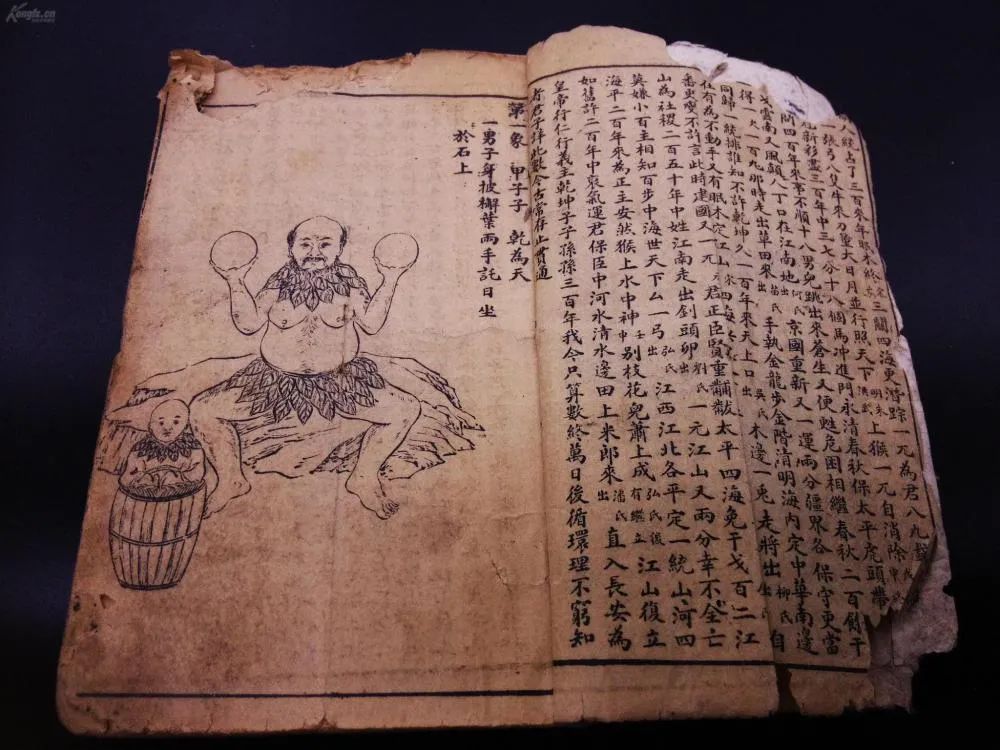 Kongfz.cn
統占了三百來年 三關四海更潛蹤一兀為君八九盤
一張弓八隻牛來刀重大日月並行照天下洪武明末上猴一兀自消除
新彩畫三百年中三七分十八個馬冲進門永清春秋保太平虎頭帶
四百年來事不順十八男兒跳出來蒼生又便甦危困相繼春秋二百餘干
戈雲南又風顛八丁口在江南地出何氏京國重新又一運兩分疆界各保守更當
得一大一百九那時走出草田來出苗氏手執金龍步金階清明海內定中華南邊
同歸一統排誰知不許乾坤久一百年來天上口出吳氏木邊一兎走將出出柳氏自
在有為不動手又有眠木定江山
番更變不許言此時建國又一兀君正臣賢重黼黻太平四海免干戈百二江
山為社稷二百五十年中姓江南走出釗頭卯出劉氏一元江山又兩分幸不全亡
莫嫌小百主相知百步中海世天下厶一弓出弘氏江西江北各平定一統山河四
海平二百年來為正主安然猴上水中神壬申別枝花兒蕭上成弘氏後有繼立江山復立
如舊許二百年中衰氣運君保臣中河水清水邊田上米郎來出潘氏直入長安為
皇帝行仁行義主乾坤子子孫孫三百年我今只算數終萬日後循環理不窮知
音君子詳此數今古常存止貫通
第一象 甲子子 乾為天
一男子身披樹葉兩手託日坐
於石上